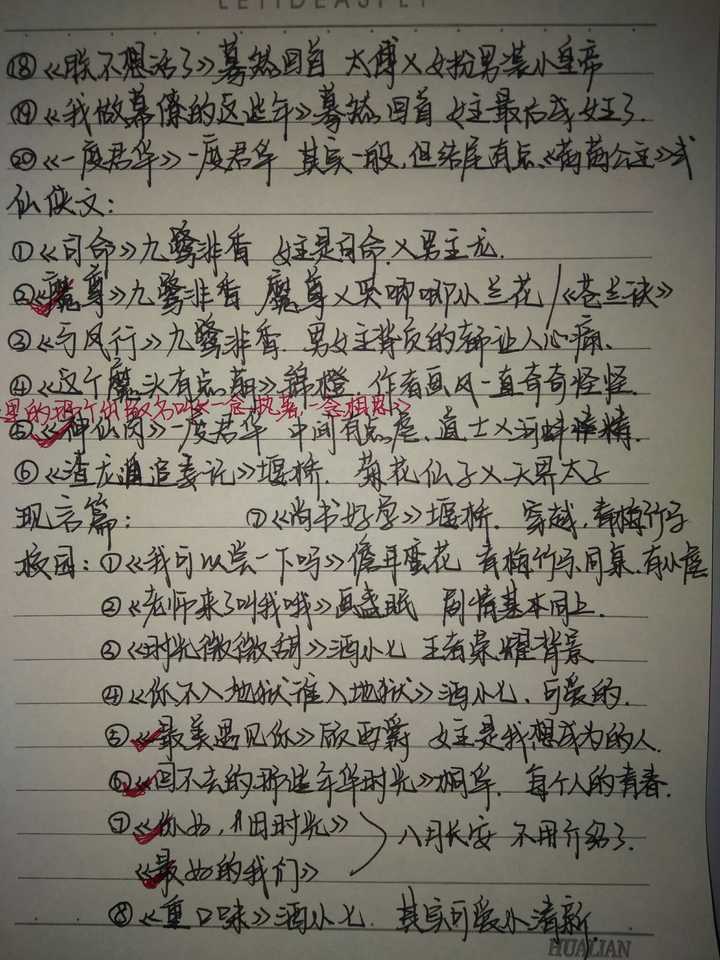 ⑱《朕不想活了》蓦然回首 太傅×女扮男装小皇帝
⑲《我做幕僚的这些年》蓦然回首 女主最后成女王了.
⑳《一度君华》一度君华 其实一般,但结尾有点《萌萌公主》式
仙侠文:
①《司命》九鹭非香 女主是司命.×男主龙.
②《魔尊》九鹭非香 魔尊×哭唧唧小兰花/《苍兰诀》
③《与凤行》九鹭非香. 男女主背负的都让人心痛.
④《这个魔头有点萌》锦橙. 作者画风一直奇奇怪怪.
里的那个出散名叫《一念执着,一念相思》
⑤《神仙肉》一度君华 中间有点虐、道士×河蚌精.
⑥《渣龙追妻记》堰桥. 菊花仙子×天界太子
现言篇: ⑦《尚书好孕》堰桥. 穿越,青梅竹马
校园:①《我可以尝一下吗》儋耳蛮花 青梅竹马.同桌.有小虐
②《老师来了叫我哦》画盏眠 剧情基本同上.
③《时光微微甜》酒小七 王者荣耀背景
④《你不入地狱谁入地狱》酒小七、可爱的.
⑤《最美遇见你》顾西爵 女主是我想成为的人.
⑥《回不去的那些年华时光》桐华. 每个人的青春.
⑦《你好,旧时光》
《最好的我们》
八月长安 不用介绍了.
⑧《重口味》酒小七. 其实可爱小清新.
HUALIAN